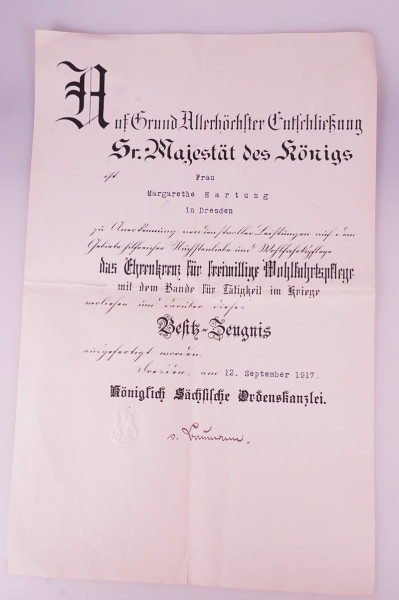 Auf Grund Allerhöchster Entschließung
Sr. Majestät des Königs
ist Frau
Margarethe Hartung
in Dresden
zu Anerkennung verdienstvoller Leistungen auf dem
Gebiete hilfreicher Nächstenliebe und Wohlfahrtspflege
das Ehrenkreuz für freiwillige Wohlfahrtspflege
mit dem Bande für Tätigkeit im Kriege
verliehen und darüber dieses
Besitz-Zeugnis
ausgefertigt worden.
Dresden, am 12. September 1917.
Königlich Sächsische Ordenskanzlei.
v. Baumann.